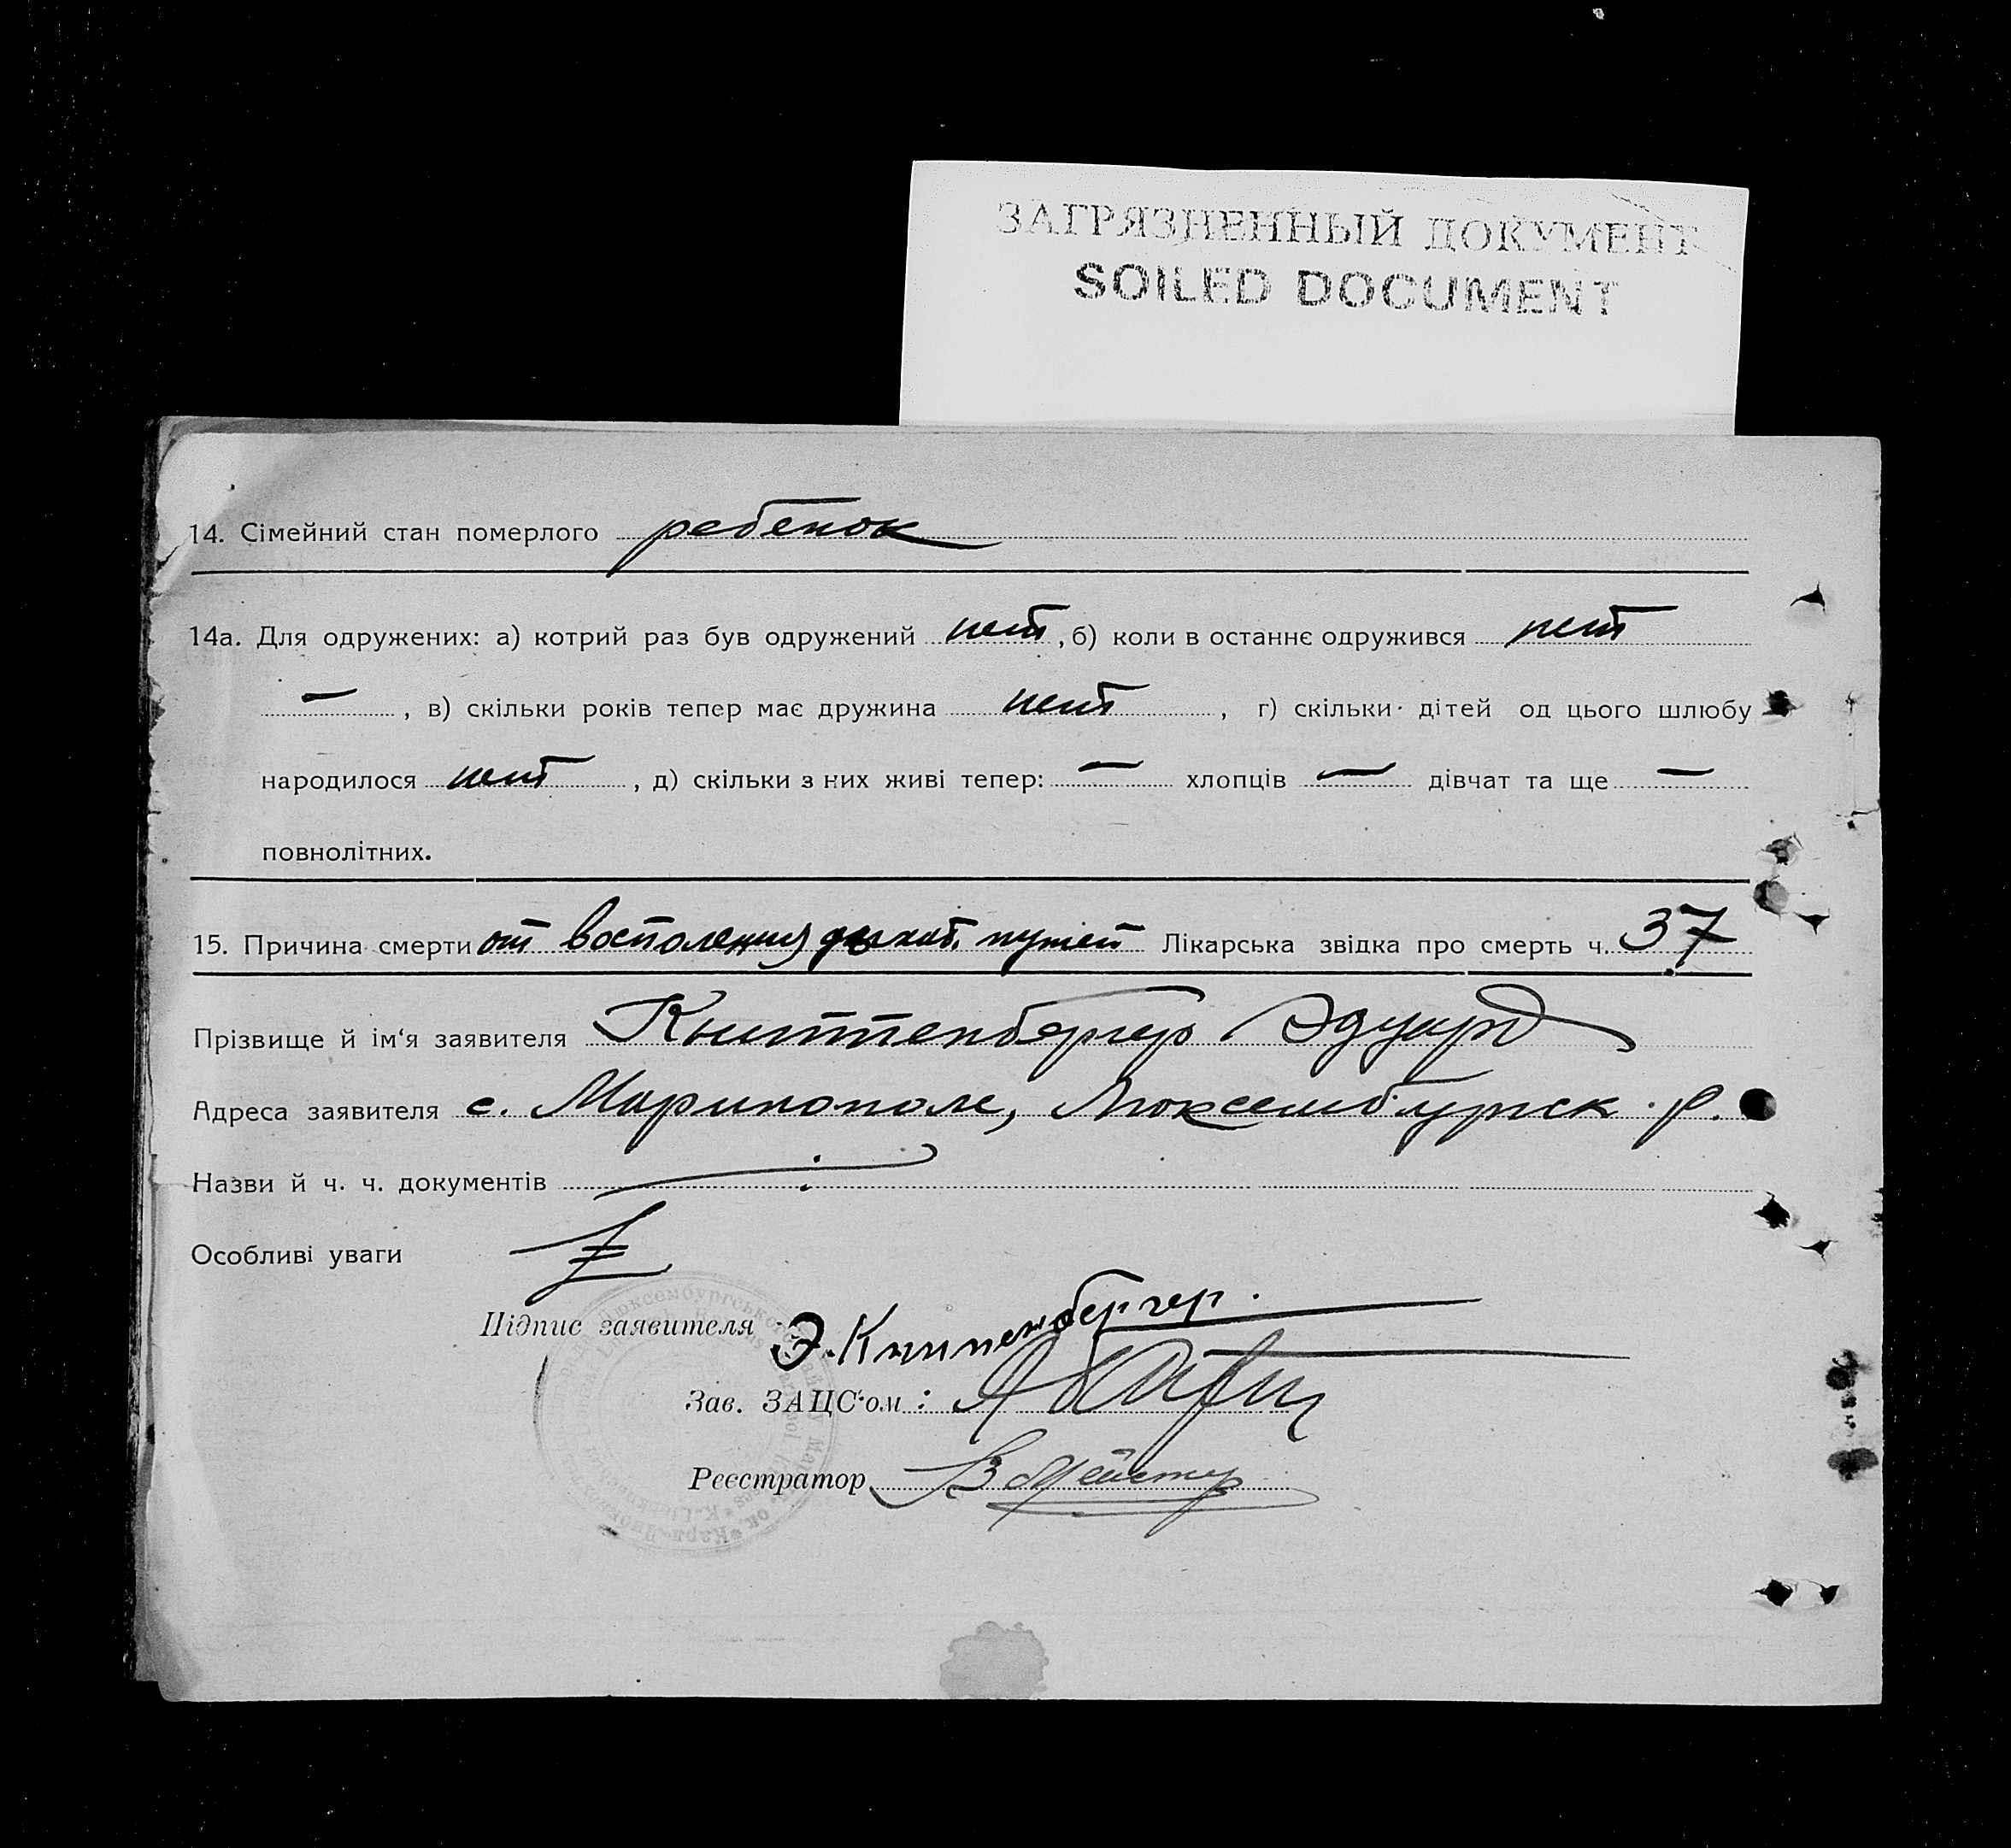 ЗАГРЯЗНЕННЫЙ ДОКУМЕНТ
SOILED DOCUMENT
14. Сімейний стан померлого ребенок
14а. Для одружених: а) котрий раз був одружений нет, б) коли в останнє одружився нет
—, в) скільки років тепер має дружина нет, г) скільки дітей од цього шлюбу
народилося нет, д) скільки з них живі тепер: — хлопців — дівчат та ще —
повнолітних.
15. Причина смерти от восполения дыхат. путей Лікарська звідка про смерть ч. 37
Прізвище й ім‘я заявителя Книттенбергер Эдуард
Адреса заявителя с. Маринополе, Люксембургск. р.
Назви й ч. ч. документів
Особливі уваги
Підпис заявителя Э. Книтенбергер.
Зав. ЗАЦС‘ом:
Реєстратор